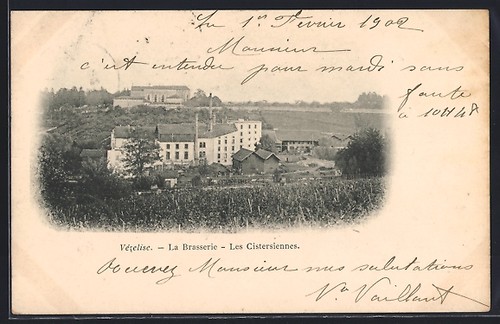 Le 1er Fevrier 1902
Monsieur
c'est entendu pour mardi sans
faute
à 10H48
Vézelise. — La Brasserie - Les Cistersiennes.
Recevez Monsieur mes salutations
Vr Vaillant